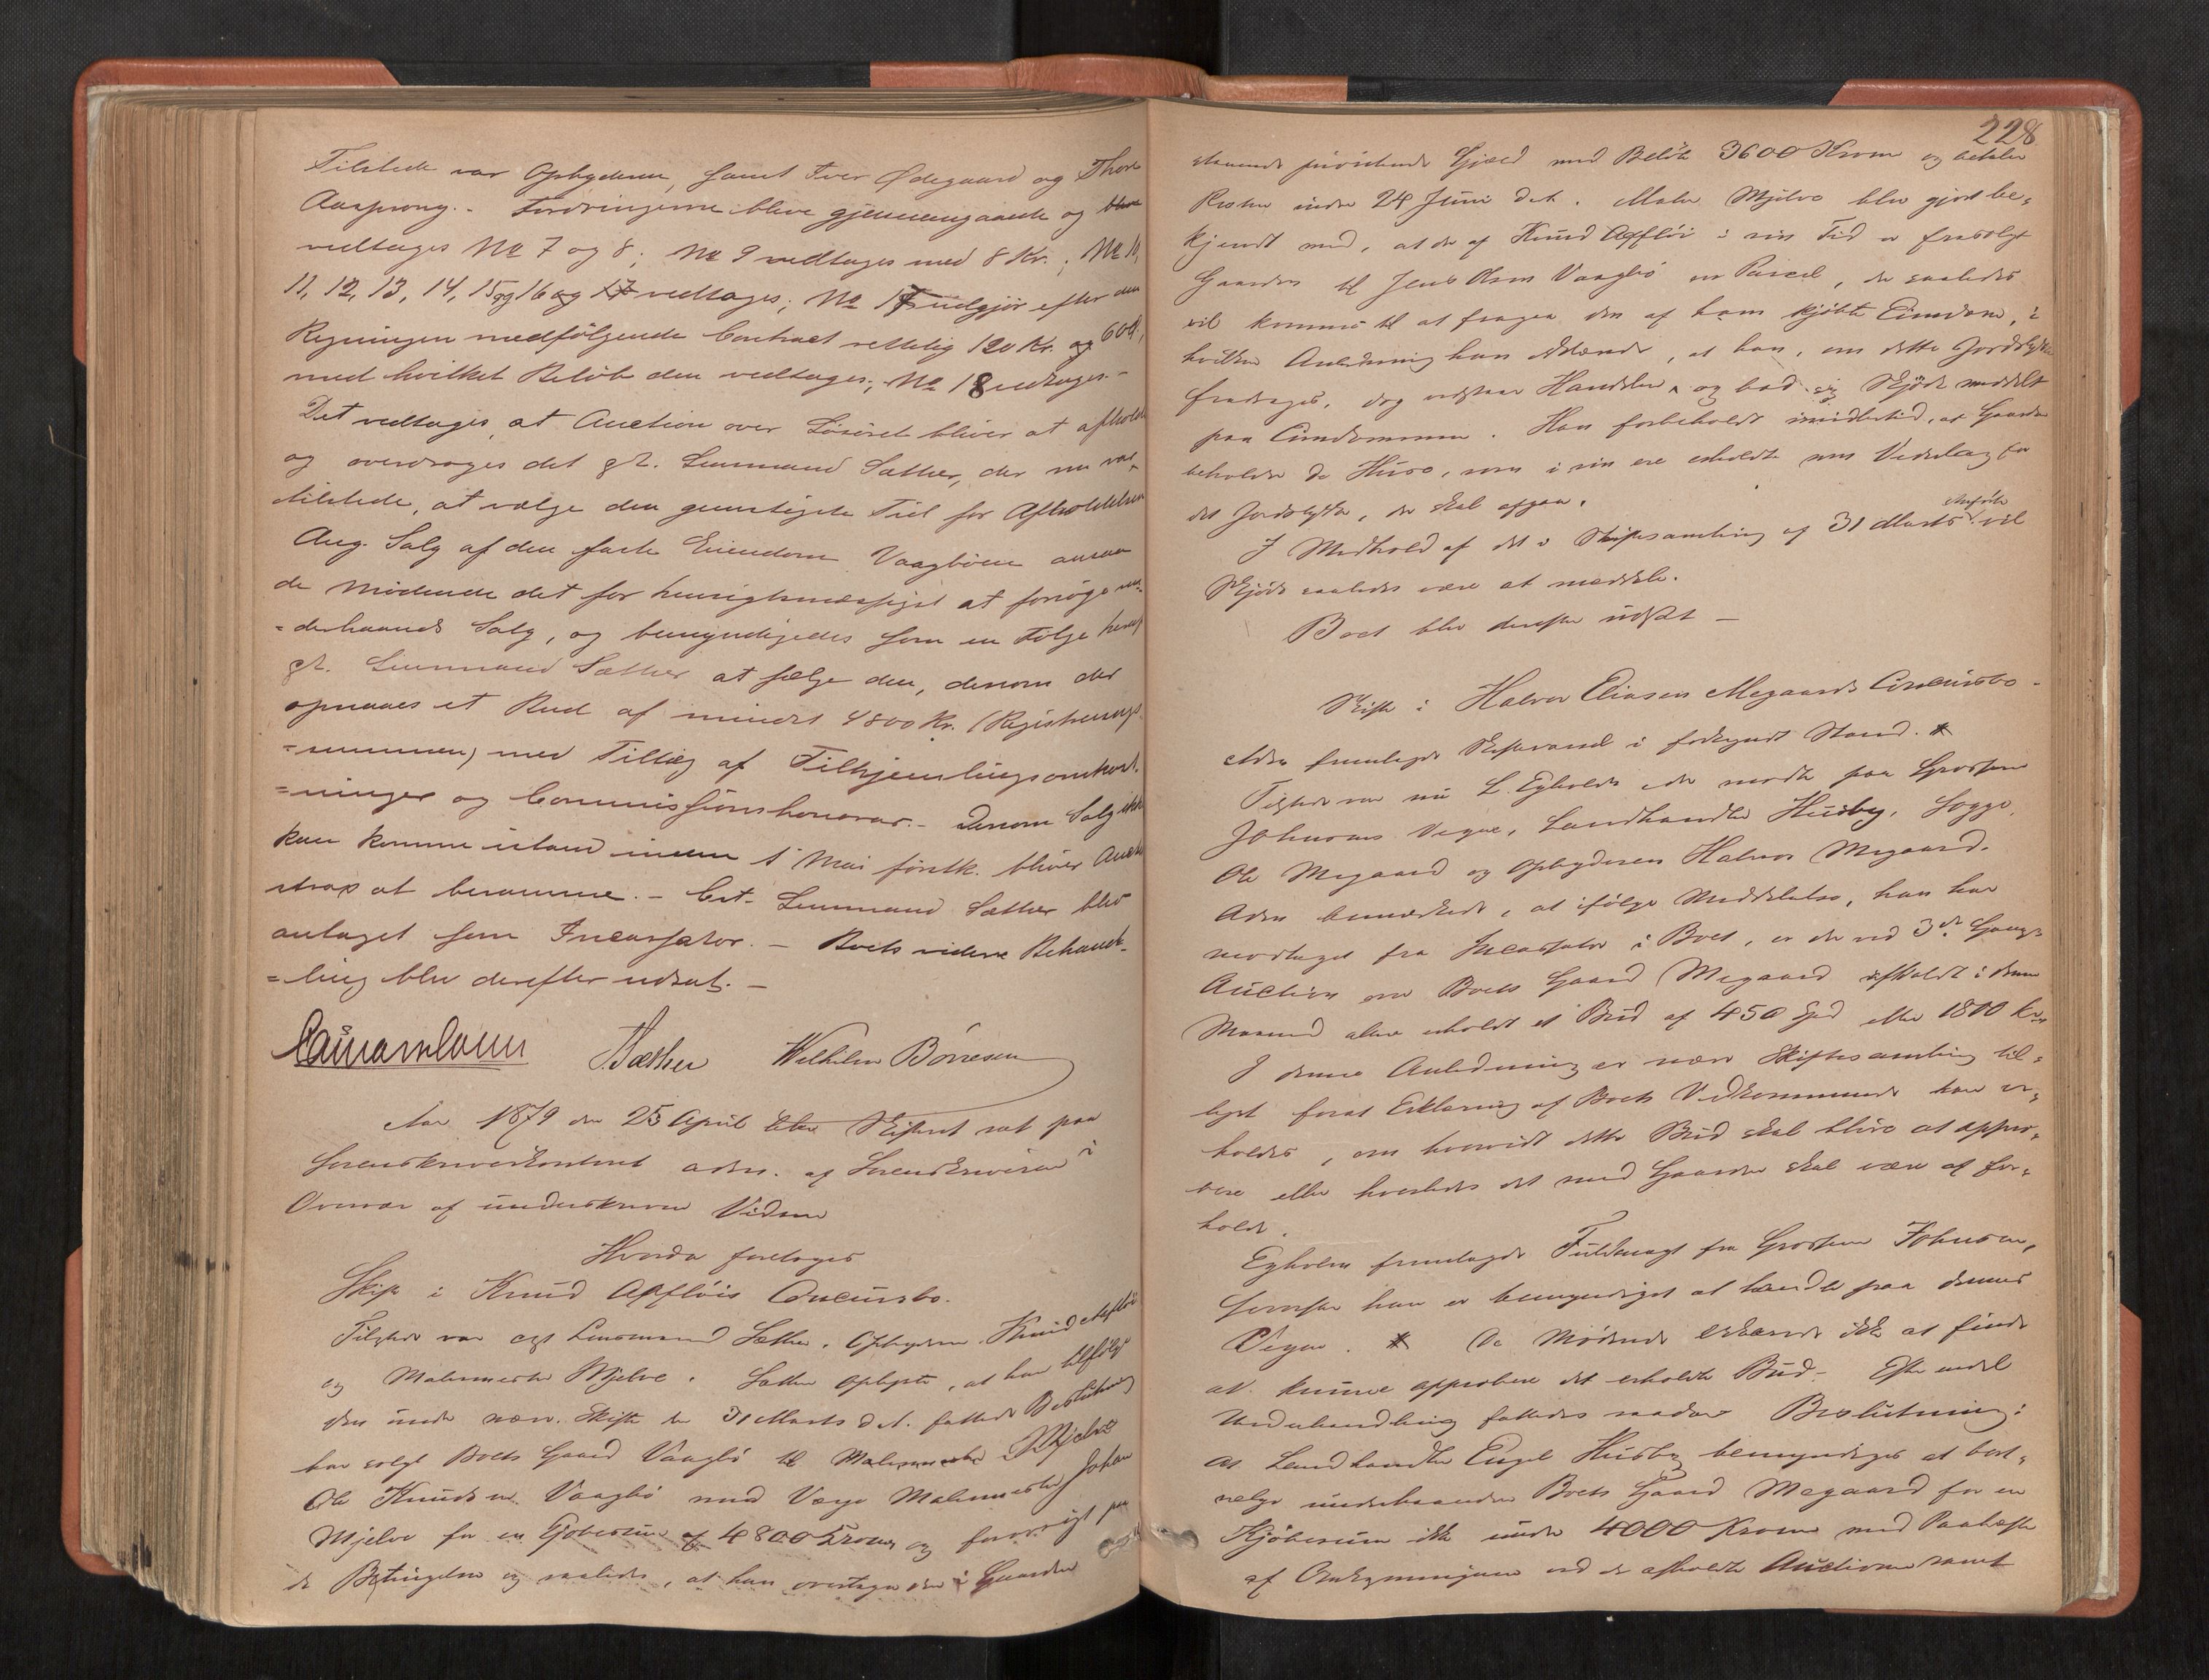 Tilstede var Opbyderen, samt Iver Ødegaard og Thore
Aasprong. - Fordringerne bleve gjennemgaaede og
vedtages № 7 og 8; № 9 vedtages med 8 Kr.; № 10,
11, 12, 13, 14, 15 og 16 vedtages; № 17 udgjør efter den
Regningen medfølgende Contract rettelig 120 Kr. og 60
med hvilket Beløb den vedtages; № 18 vedtages. -
Det vedtages, at Auction over Løsøret bliver at afholde
og overdrages det gst. Lensmand Sæther, der nu var
tilstede, at vælge den gunstigste Tid for Afholdelsen
Ang. Salg af den faste Eiendom Vaagbøen ansaa
de Mødende det for hensigtsmæssigst at forsøge un-
=derhaands Salg, og bemyndigedes som en Følge heraf
gst. Lensmand Sæther at sælge den, dersom der
opnaaes et Bud af mindst 4800 Kr. (Registrerings
=summen) med Tillæg af Tilhjemlingsomkost-
=ninger og Commissionshonorar. - Dersom Salg ikke
kan komme istand inden 1 Mai førstk. bliver Auction
strax at berammes. - Cst. Lensmand Sæther blev
antaget som Incassator. - Boets videre Behand-
=ling blev derefter udsat. -
Sæther Wilhelm Børresen
Aar 1879 den 25 April blev Skifteret sat paa
Sorenskriverkontoret adm. af Sorenskriveren i
Overvær af underskrevne Vidner
Hvorda foretoges
Skifte i Knud Apfløis Concursbo.
Tilstede var cst Lensmand Sæther, Opbyderen Knud Apfløi
og Malermester Mjelve. Sæther oplyste, at han tilfølge
den under nærv. Skifte den 31 Marts d.A. fattede Beslutning
har solgt Boets Gaard Vaagbø til Malermester Mjelve
Ole Knudsen Vaagbø med Værge Malermester Johan
Mjelve for en Kjøbesum af 4800 Kroner og forøvrigt paa
de Betingelser og saaledes, at han overtager den i Gaarden
228
staaende Gjæld med Beløb 3600 Kroner og betaler
Resten inden 24 Juni d.A. Maler Mjelve blev gjort be-
kjendt med, at der af Knud Apfløi i sin Tid er frasolgt
Gaarden til Jens Olsen Vaagbø en Parcel, der saaledes
vil komme til at fragaa den af ham kjøbte Eiendom, i
hvilken Anledning han erklærede, at han, om dette Jordstykke
fradrages, dog vedstaar Handelen og bad sig Skjøde meddelt
paa Eiendommen. Han forbeholdt imidlertid, at Gaarden
beholder de Huse, som i sin ere erholdte som Vederlag for
det Jordstykke, der skal afgaa.
I Medhold af det i Skiftesamling af 31 Marts anførte vil
Skjøde saaledes være at meddele.
Boet blev derefter udsat -
Skifte i Halvor Eliasen Megaards Concursbo -
Adm fremlagde Skiftevarsel i forkyndt Stand. *
Tilstede var nu L. Egholm der mødte paa Grosserer
Johnsens Vegne, Landhandler Husby, Sogge,
Ole Megaard og Opbyderen Halvor Megaard.
Adm bemærkede, at ifølge Meddelelse, han har
modtaget fra Incassator i Boet, er der ved 3die Gangs
Auction over Boets Gaard Megaard afholdt i denne
Maaned alene erholdt et Bud af 450 Spd eller 1800 Kr.
I denne Anledning er nærv Skiftesamling til-
lyst forat Erklæring af Boets Vedkommende kan er-
holdes, om hvorvidt dette Bud skal blive at appro-
bere eller hvorledes det med Gaarden skal være at for-
holde.
Egholm fremlagde Fuldmagt fra Grosserer Johnsen,
hvorefter han er bemyndiget at handle paa dennes
Vegne. * De Mødende erklærede ikke at finde
at kunne approbere det erholdte Bud - Efter endel
Underhandling fattedes saadan Beslutning:
At Landhandler Engel Husby bemyndiges at bort-
sælge underhaanden Boets Gaard Megaard for en
Kjøbesum ikke under 4000 Kroner med Paahefte
af Omkostningerne ved de afholdte Auctioner samt